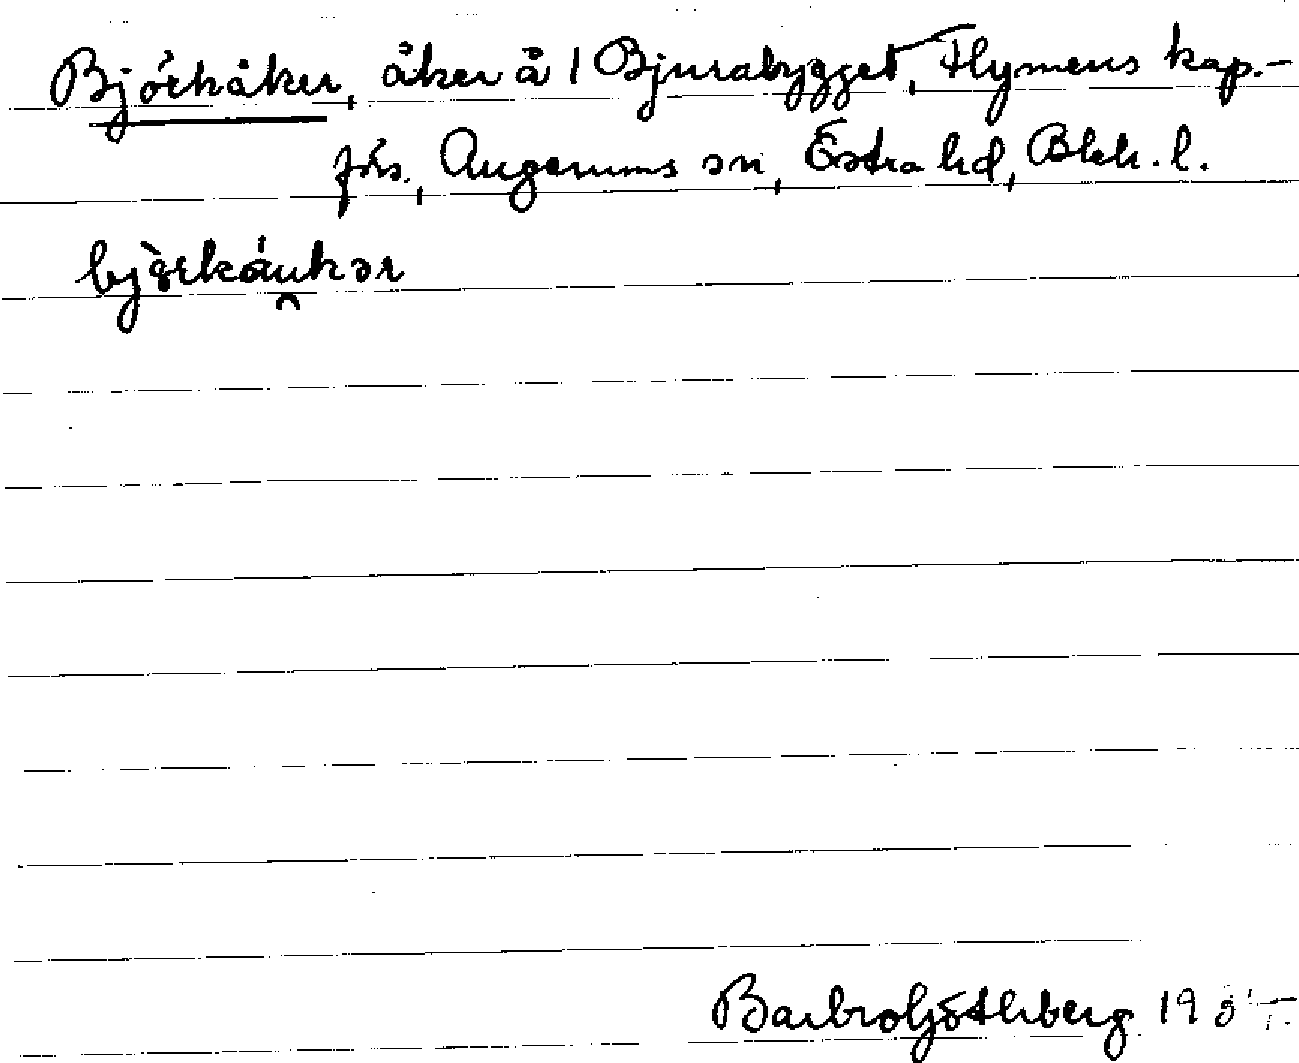 Björkåker, åker å 1 Bjurabygget, Flymens kap.-
förs., Augerums sn, Östra hd, Blek. l.
bjòrkáu̯kər
Barbro Göthberg 19